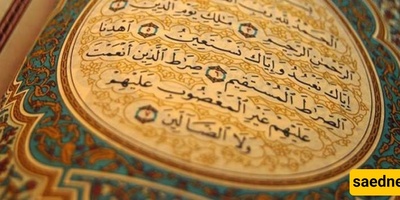 الحمد لله رب
الرحمن الرحيم ۝ ملك يوم الدين ۝
إياك نعبد وإياك نستعين ۝ اهدنا
الصرط المستقيم ۝ صرط الذين أنعمت
عليهم غير المغضوب عليهم
ولا الضالين ۝
saedne